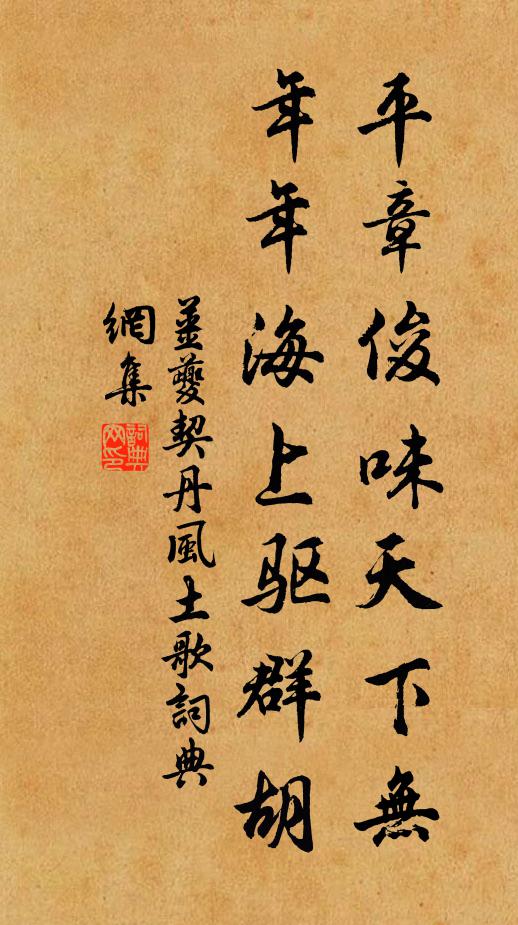 平章俊味天下無
年年海上驱群胡
姜夔契丹風土歌詞典
網集
詞典
网印